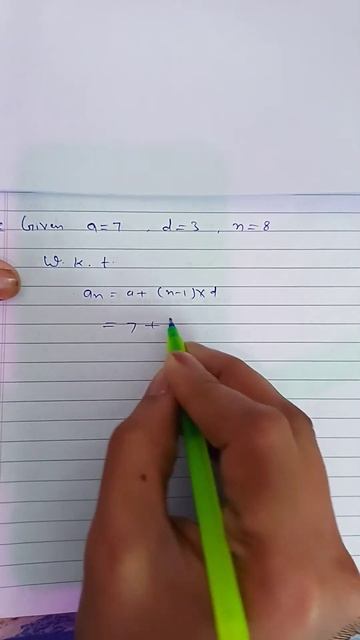 Given a=7 , d=3 , n=8
W. k. t.
an = a + (n-1)xd
= 7 +